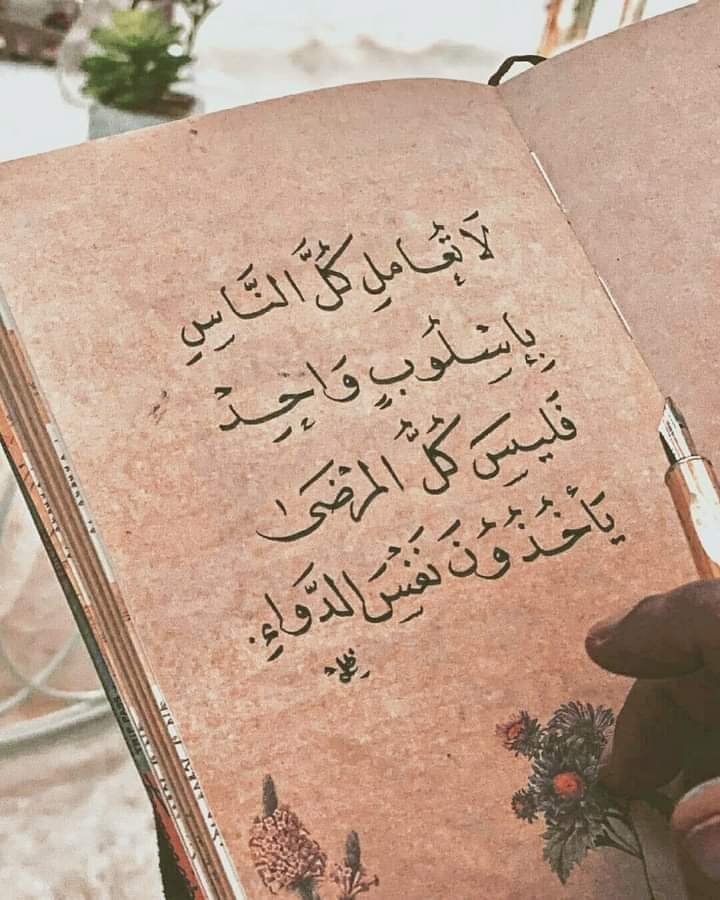 لَا تُعَامِلِ كُلَّ النَّاسِ
بِإِسْلُوبٍ وَاحِدْ
فَلَيسَ كُلُّ المَرْضَىٰ
يَأخُذُوُنَ نَفْسَ الدَّوَاءِ.